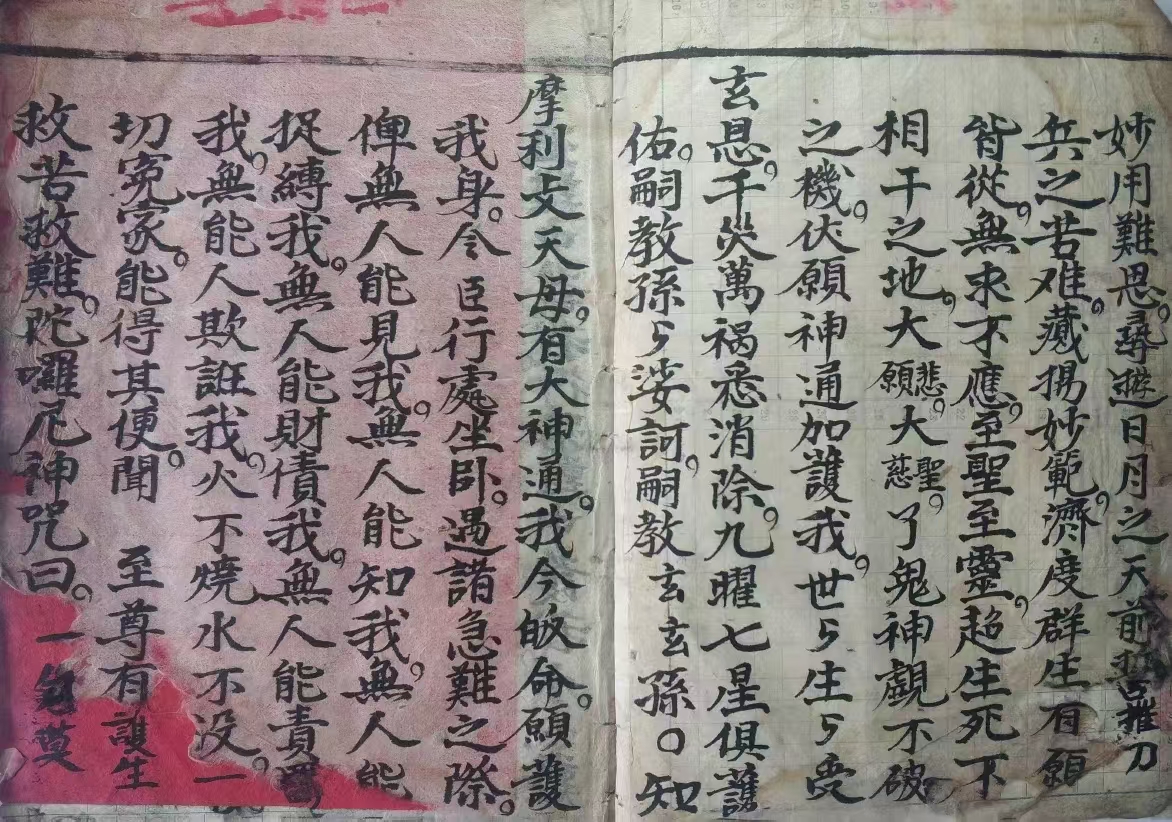 妙用難思。尋遊日月之天前救羅刀
兵之苦难。藏揚妙範。濟度群生有願
皆從。無求不應。至聖至靈。超生死不
相干之地。大悲。願大聖。慈了鬼神覷不破
之機。伏願神通加護我。世〻生〻受
玄恩。千災萬禍悉消除。九曜七星俱護
佑。嗣教孫〻娑訶。嗣教玄玄孫〇知
摩利支天母。有大神通。我今皈命。願護
我身。今臣行處坐卧。遇諸急難之際。
俾無人能見我。無人能知我。無人能
捉縛我。無人能財債我。無人能責罵
我。無能人欺誑我。火不燒水不没。一
切冤家。能得其便。聞 至尊有護生
救苦救難。陀囉尼神咒曰。